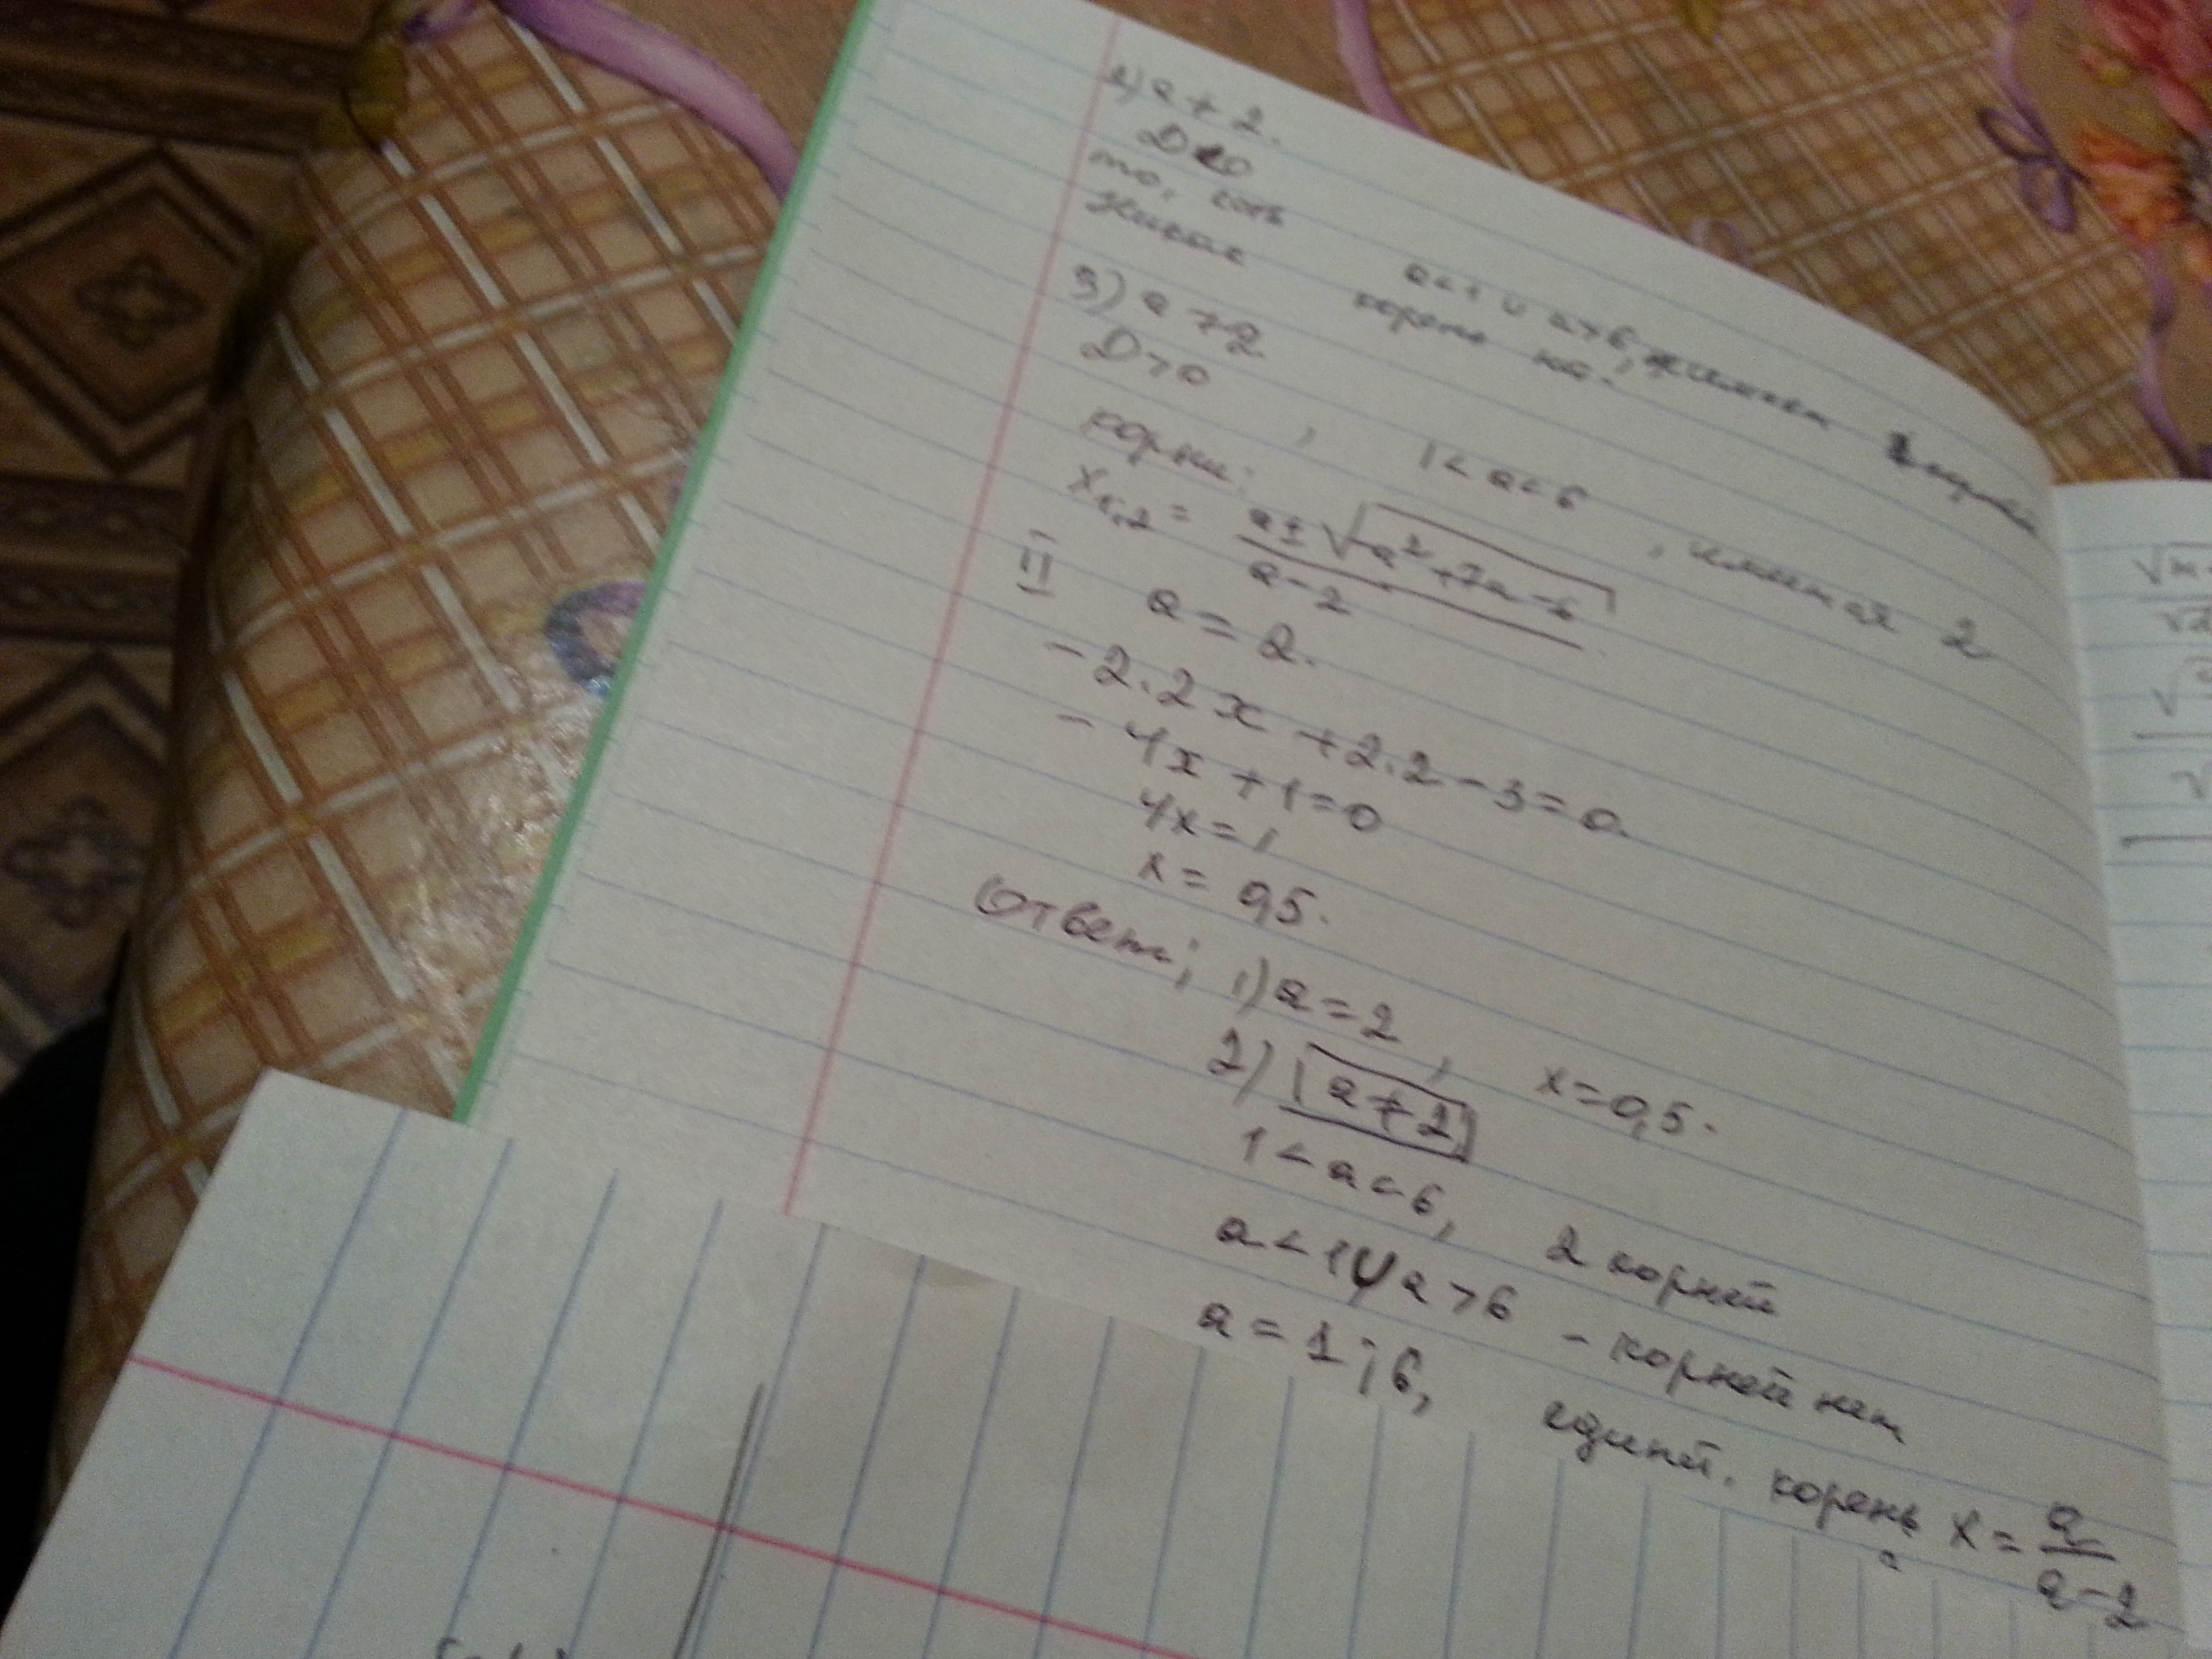 2) a ≠ 2.
D<0
то, есть a<1 ∪ a>6,
корень нет.
3) a ≠ 2
D>0, 1<a<6, имеются 2
корни:
x₁,₂ = (a ± √(-a² + 7a - 6)) / (a - 2)
II a = 2.
- 2·2x + 2·2 - 3 = 0.
- 4x + 1 = 0
4x = 1
x = 0,5.
Ответ; 1) a = 2, x = 0,5.
2) a ≠ 2
1 < a < 6, 2 корней
a < 1 ∪ a > 6 - корней нет
a = 1; 6, единст. корень x = a / (a - 2)